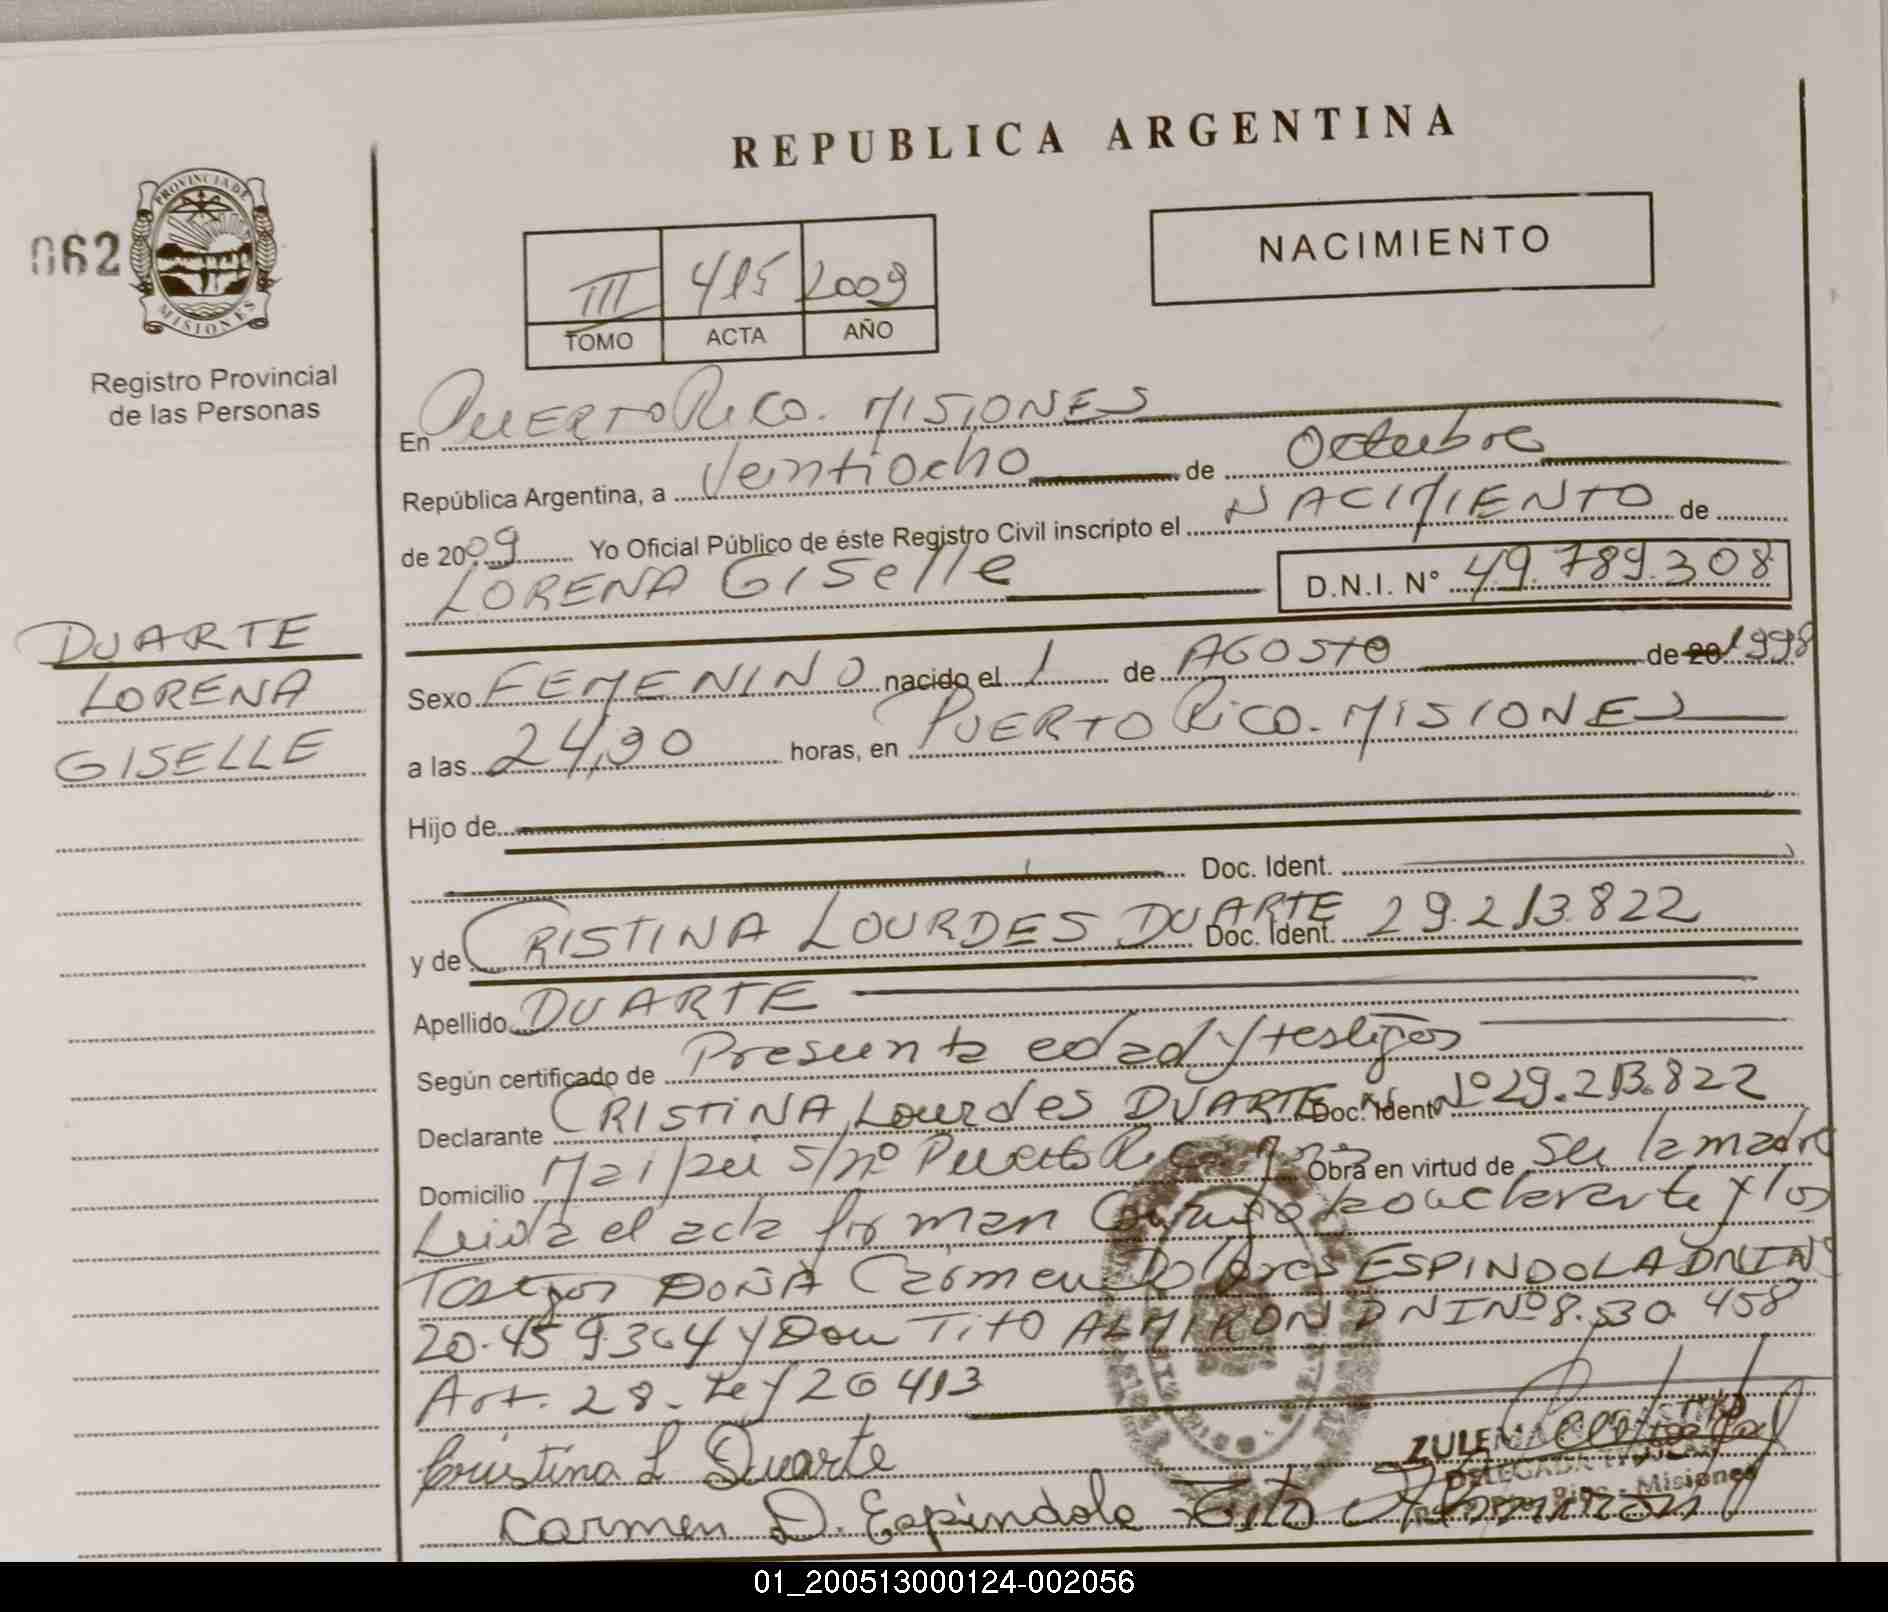 REPUBLICA ARGENTINA
NACIMIENTO
062
PROVINCIA DE
MISIONES
III 415 2009
TOMO ACTA AÑO
Registro Provincial
de las Personas
En PUERTO RICO. MISIONES
República Argentina, a Veintiocho de Octubre
de 2009 Yo Oficial Público de éste Registro Civil inscripto el NACIMIENTO de
LORENA GISelle D.N.I. N° 49.789.308
DUARTE
LORENA
GISELLE
Sexo FEMENINO nacido el 1 de AGOSTO de 20 1998
a las 24,30 horas, en PUERTO RICO. MISIONES
Hijo de
Doc. Ident.
y de CRISTINA LOURDES DUARTE Doc. Ident. 29.213.822
Apellido DUARTE
Según certificado de Presunta edad y testigos
Declarante CRISTINA Lourdes DUARTE Doc. Ident Nº 29.213.822
Domicilio Maipú s/nº Puerto Rico Obra en virtud de ser la madre
Leida el acta firman Conmigo la declarante y los
Testigos DOÑA Carmen Dolores ESPINDOLA DNI Nº
20.459.364 y Don TITO ALMIRON DNI Nº 8.530.458
Art. 28 - Ley 26413
Cristina L Duarte
ZULEMA
DELEGADA
Misiones
Carmen D. Espindola Tito Almiron
01_200513000124-002056